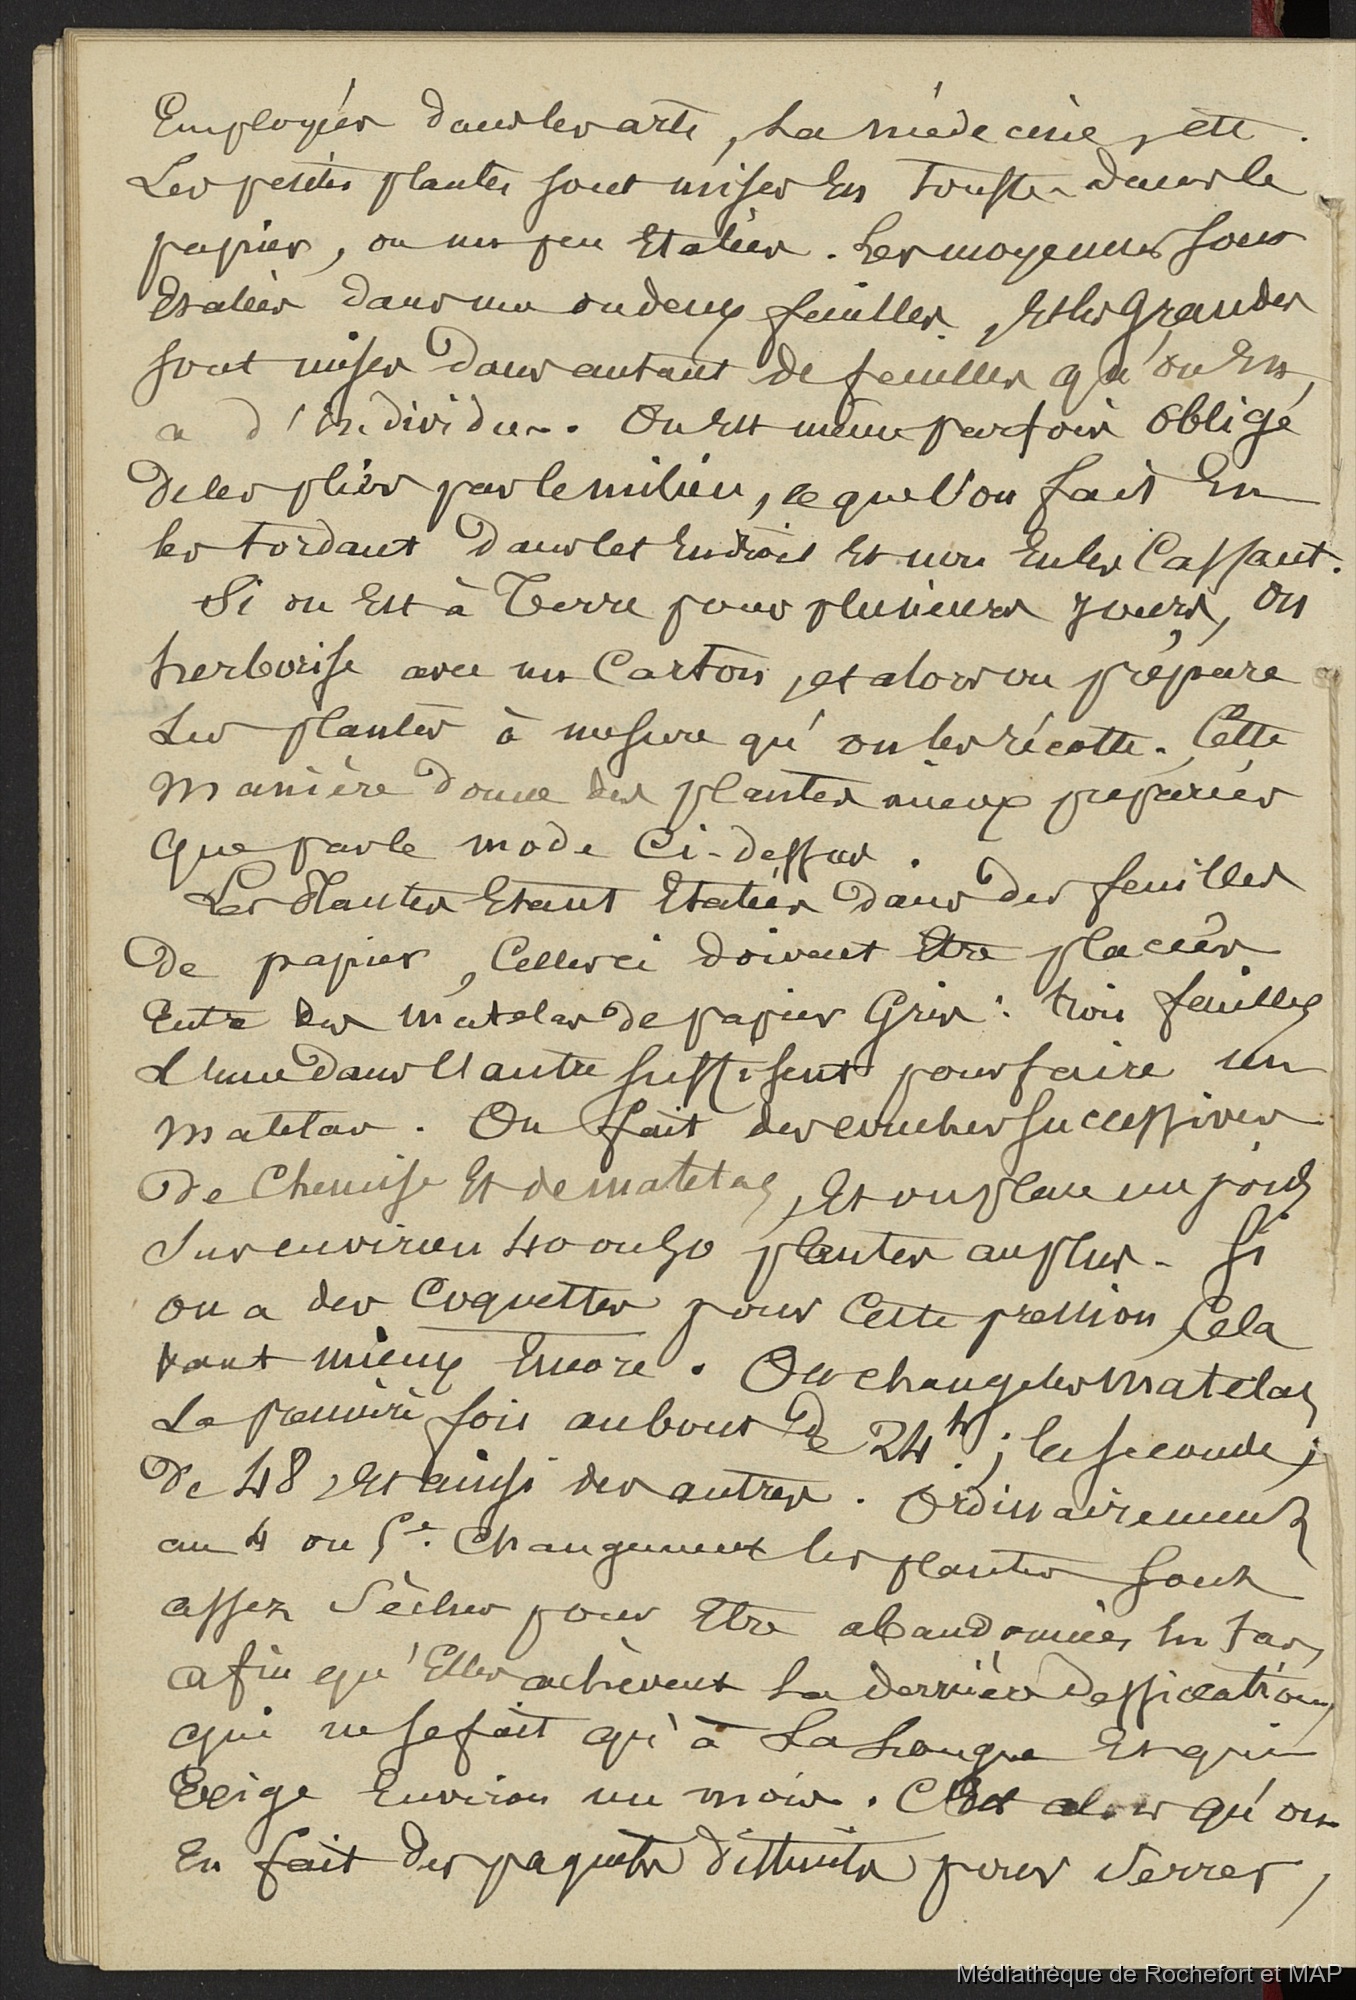 Employées dans les arts, la médecine, etc.
Les petites plantes sont mises en touffe dans le
papier, ou un peu étalées. Les moyennes sont
étalées dans une ou deux feuilles, et les grandes
sont mises dans autant de feuilles qu'on en
a d'individus. On est même parfois obligé
de les plier par le milieu, ce que l'on fait en
les tordant dans cet endroit et non en les cassant.
Si on est à terre pour plusieurs jours, on
herborise avec un carton, et alors on prépare
les plantes à mesure qu'on les récolte. Cette
manière donne des plantes mieux préparées
que par le mode ci-dessus.
Les Plantes étant étalées dans des feuilles
de papier, celles ci doivent être placées
entre des matelas de papier gris : trois feuilles
l'une dans l'autre suffisent pour faire un
matelas. On fait des couches successives
de chemise et de matelas, et on place un poids
sur environ 40 ou 50 plantes au plus. Si
on a des coquettes pour cette pression, cela
vaut mieux encore. On change les matelas
la première fois au bout de 24h ; la seconde,
de 48, et ainsi des autres. Ordinairement
au 4 ou 5e. changement les plantes sont
assez sèches pour être abandonnées en tas,
afin qu'elles achèvent la dernière dessiccation,
qui ne se fait qu'à la longue et qui
exige environ un mois. C'est alors qu'on
en fait des paquets distincts pour serrer,
Médiathèque de Rochefort et MAP